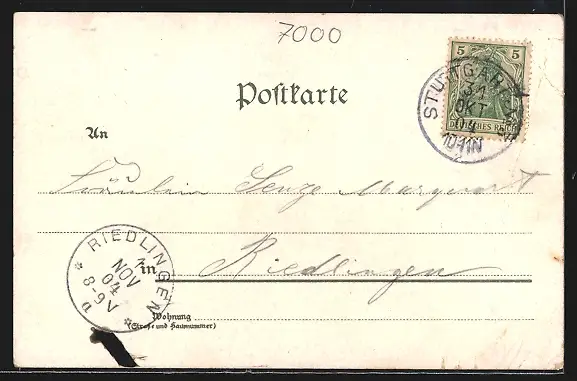 7000
5 5
DEUTSCHES REICH
STUTTGART
31
OKT
04
10-11N
Postkarte
An
Fräulein
Riedlingen
in
RIEDLINGEN
1
NOV
04
8-9V
Wohnung
(Straße und Hausnummer)